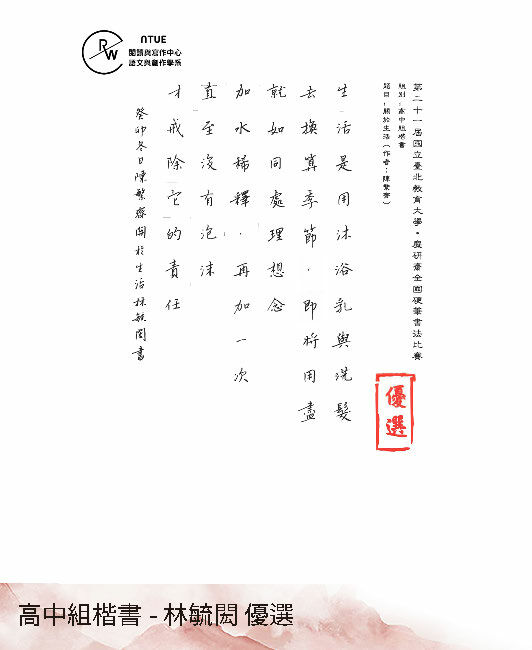 RW
NTUE
閱讀與寫作中心
語文與創作學系
第二十一屆國立臺北教育大學·慶研齋全國硬筆書法比賽
組別：高中組楷書
題目：關於生活（作者：陳繁齊）
生活是用沐浴乳與洗髮
去換算季節，即將用盡
就如同處理想念
加水稀釋，再加一次
直至沒有泡沫
才戒除它的責任
癸卯冬日陳繁齊關於生活林毓閎書
優選
高中組楷書 - 林毓閎 優選